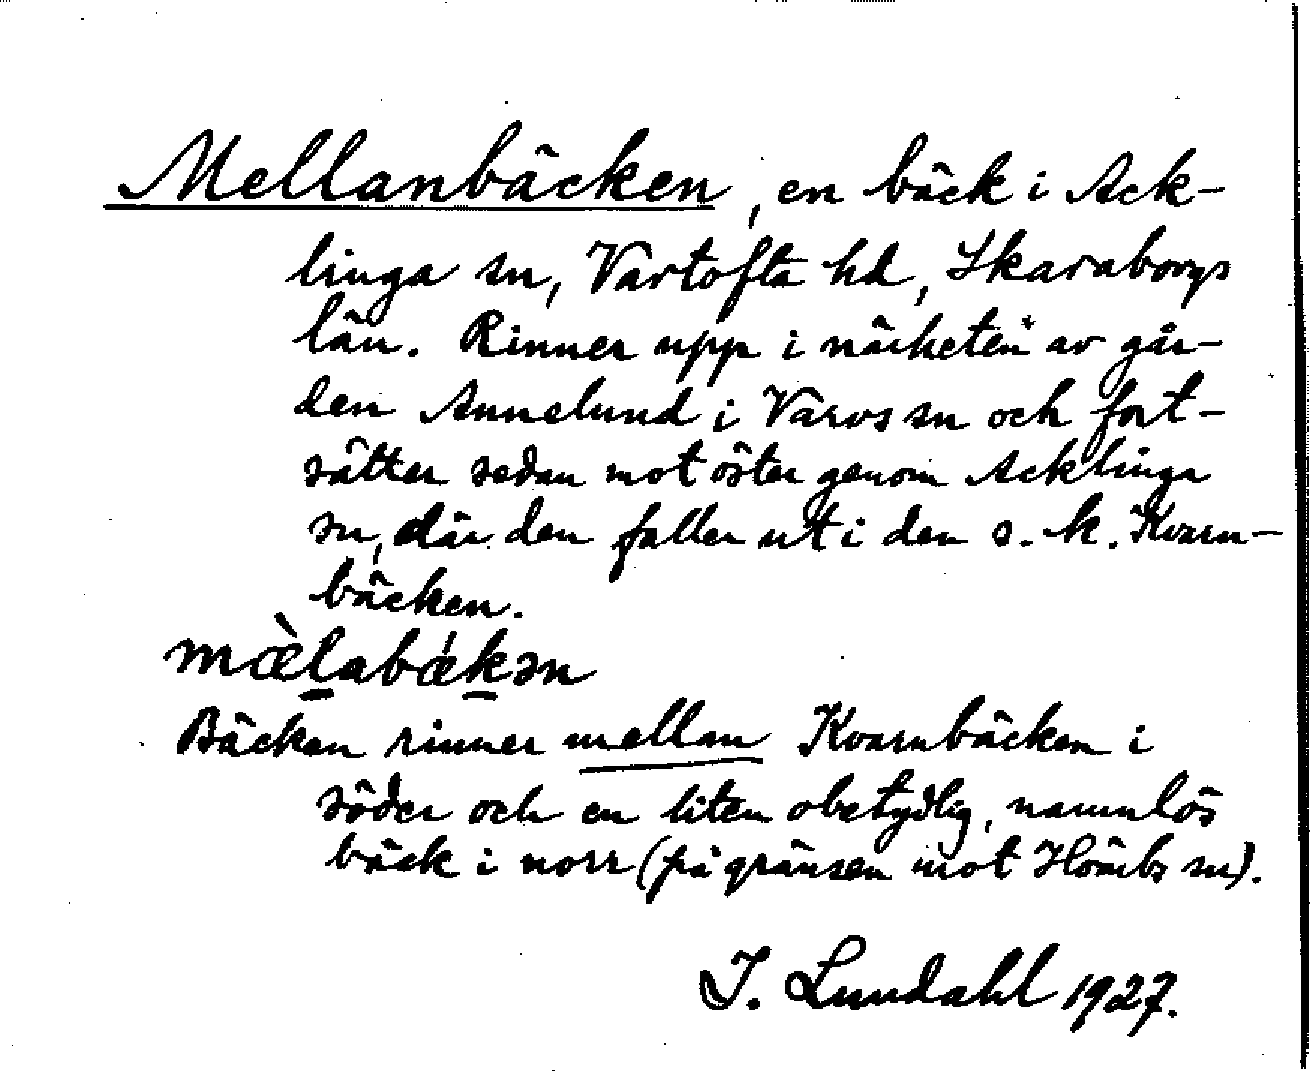 Mellanbäcken, en bäck i Ack-
linga sn, Vartofta hd, Skaraborgs
län. Rinner upp i närheten av går-
den Annelund i Varvs sn och fort-
sätter sedan mot öster genom Acklinga
sn, där den faller ut i den s. k. Kvarn-
bäcken.
mæ̀labǽkən
Bäcken rinner mellan Kvarnbäcken i
söder och en liten obetydlig, namnlös
bäck i norr (på gränsen mot Hömbs sn).
I. Lundahl 1927.